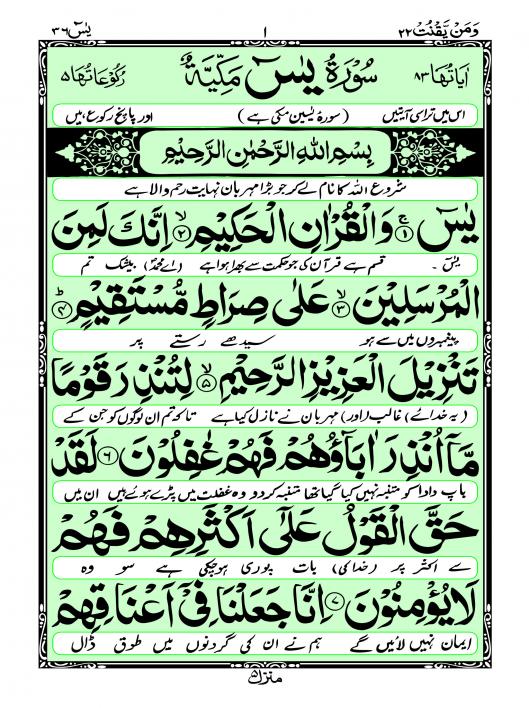 وَمَنْ يَّقْنُتْ ٢٢ ١ يٰسٓ ٣٦
اٰيَاتُهَا ٨٣ سُوْرَةُ يٰسٓ مَكِّيَّةٌ رُكُوْعَاتُهَا ٥
اس میں تراسی آیتیں (سورۂ یٰسین مکی ہے) اور پانچ رکوع ہیں
بِسْمِ اللهِ الرَّحْمٰنِ الرَّحِيْمِ
شروع اللہ کا نام لے کر جو بڑا مہربان نہایت رحم والا ہے
يٰسٓ ۚ ﴿١﴾ وَالْقُرْاٰنِ الْحَكِيْمِ ۙ ﴿٢﴾ اِنَّكَ لَمِنَ
یٰسٓ ۔ قسم ہے قرآن کی جو حکمت سے بھرا ہوا ہے (اے محمدؐ) بیشک تم
الْمُرْسَلِيْنَ ۙ ﴿٣﴾ عَلٰى صِرَاطٍ مُّسْتَقِيْمٍ ؕ ﴿٤﴾
پیغمبروں میں سے ہو سیدھے رستے پر
تَنْزِيْلَ الْعَزِيْزِ الرَّحِيْمِ ۙ ﴿٥﴾ لِتُنْذِرَ قَوْمًا
(یہ خدائے) غالب (اور) مہربان نے نازل کیا ہے تاکہ تم ان لوگوں کو جن کے
مَّاۤ اُنْذِرَ اٰبَآؤُهُمْ فَهُمْ غٰفِلُوْنَ ﴿٦﴾ لَقَدْ
باپ دادا کو متنبہ نہیں کیا گیا تھا متنبہ کردو وہ غفلت میں پڑے ہوئے ہیں ان میں
حَقَّ الْقَوْلُ عَلٰٓى اَكْثَرِهِمْ فَهُمْ
سے اکثر پر (خدا کی) بات پوری ہوچکی ہے سو وہ
لَا يُؤْمِنُوْنَ ﴿٧﴾ اِنَّا جَعَلْنَا فِيْٓ اَعْنَاقِهِمْ
ایمان نہیں لائیں گے ہم نے ان کی گردنوں میں طوق ڈال
منزل ۵